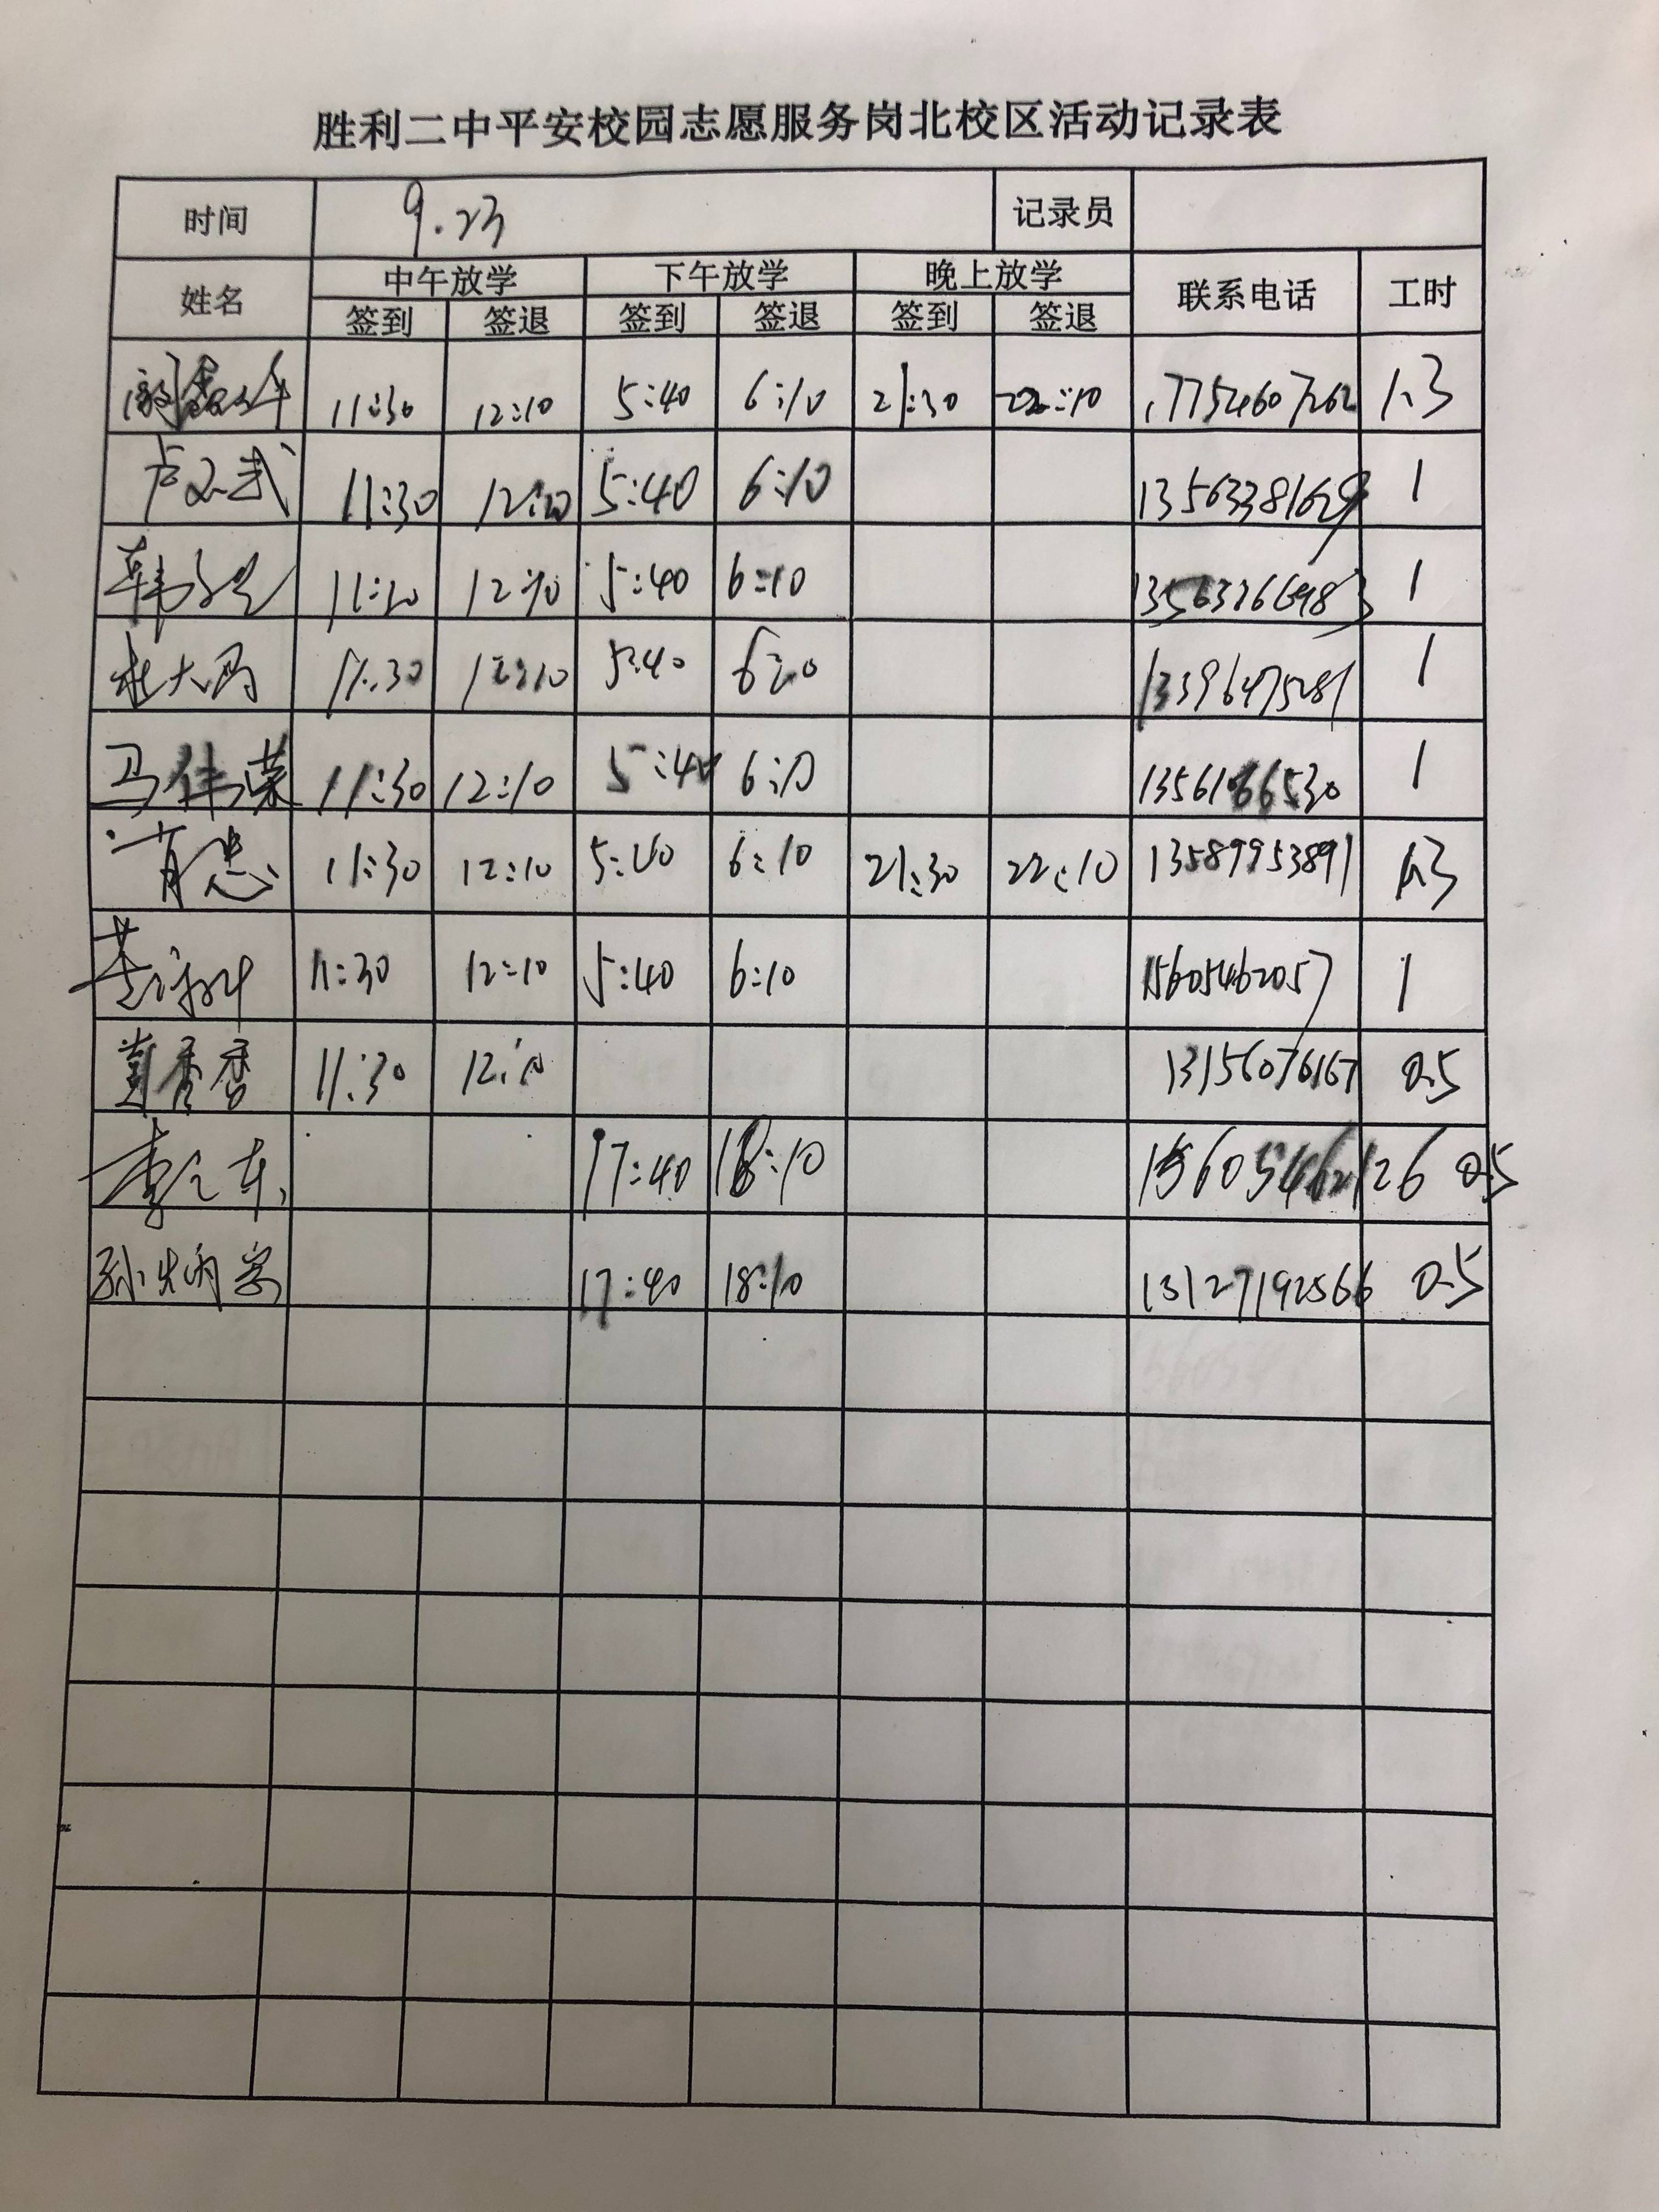 胜利二中平安校园志愿服务岗北校区活动记录表
时间 9.23 记录员
姓名 中午放学 下午放学 晚上放学 联系电话 工时
签到 签退 签到 签退 签到 签退
11:30 12:10 5:40 6:10 21:30 22:10 17754607262 1.3
卢文武 11:30 12:10 5:40 6:10 13563381629 1
11:30 12:10 5:40 6:10 1
杜大丙 11:30 12:10 5:40 6:10 13396475281 1
马伟荣 11:30 12:10 5:40 6:10 13561066530 1
肖惠 11:30 12:10 5:40 6:10 21:30 22:10 13589953891 1.3
11:30 12:10 5:40 6:10 15605462057 1
11:30 12:10 13156076167 0.5
17:40 18:10 15605462126 0.5
孙炳岩 17:40 18:10 13127192566 0.5